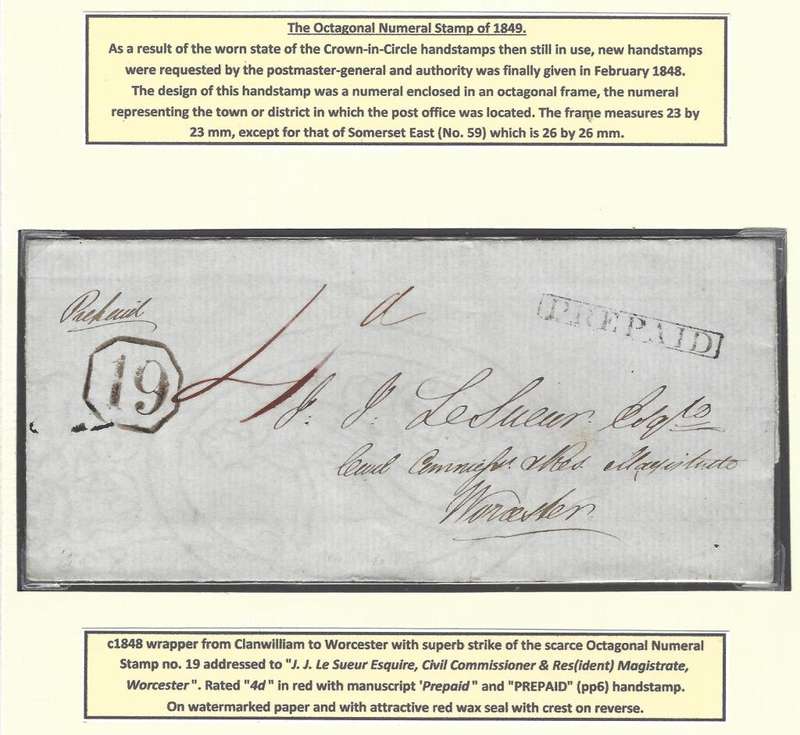 The Octagonal Numeral Stamp of 1849.
As a result of the worn state of the Crown-in-Circle handstamps then still in use, new handstamps
were requested by the postmaster-general and authority was finally given in February 1848.
The design of this handstamp was a numeral enclosed in an octagonal frame, the numeral
representing the town or district in which the post office was located. The frame measures 23 by
23 mm, except for that of Somerset East (No. 59) which is 26 by 26 mm.
Prepaid
4 d
PREPAID
19
J. J. Le Sueur Esqre
Civil Commissr. & Res. Magistrate
Worcester
c1848 wrapper from Clanwilliam to Worcester with superb strike of the scarce Octagonal Numeral
Stamp no. 19 addressed to "J. J. Le Sueur Esquire, Civil Commissioner & Res(ident) Magistrate,
Worcester". Rated "4d" in red with manuscript 'Prepaid" and "PREPAID" (pp6) handstamp.
On watermarked paper and with attractive red wax seal with crest on reverse.